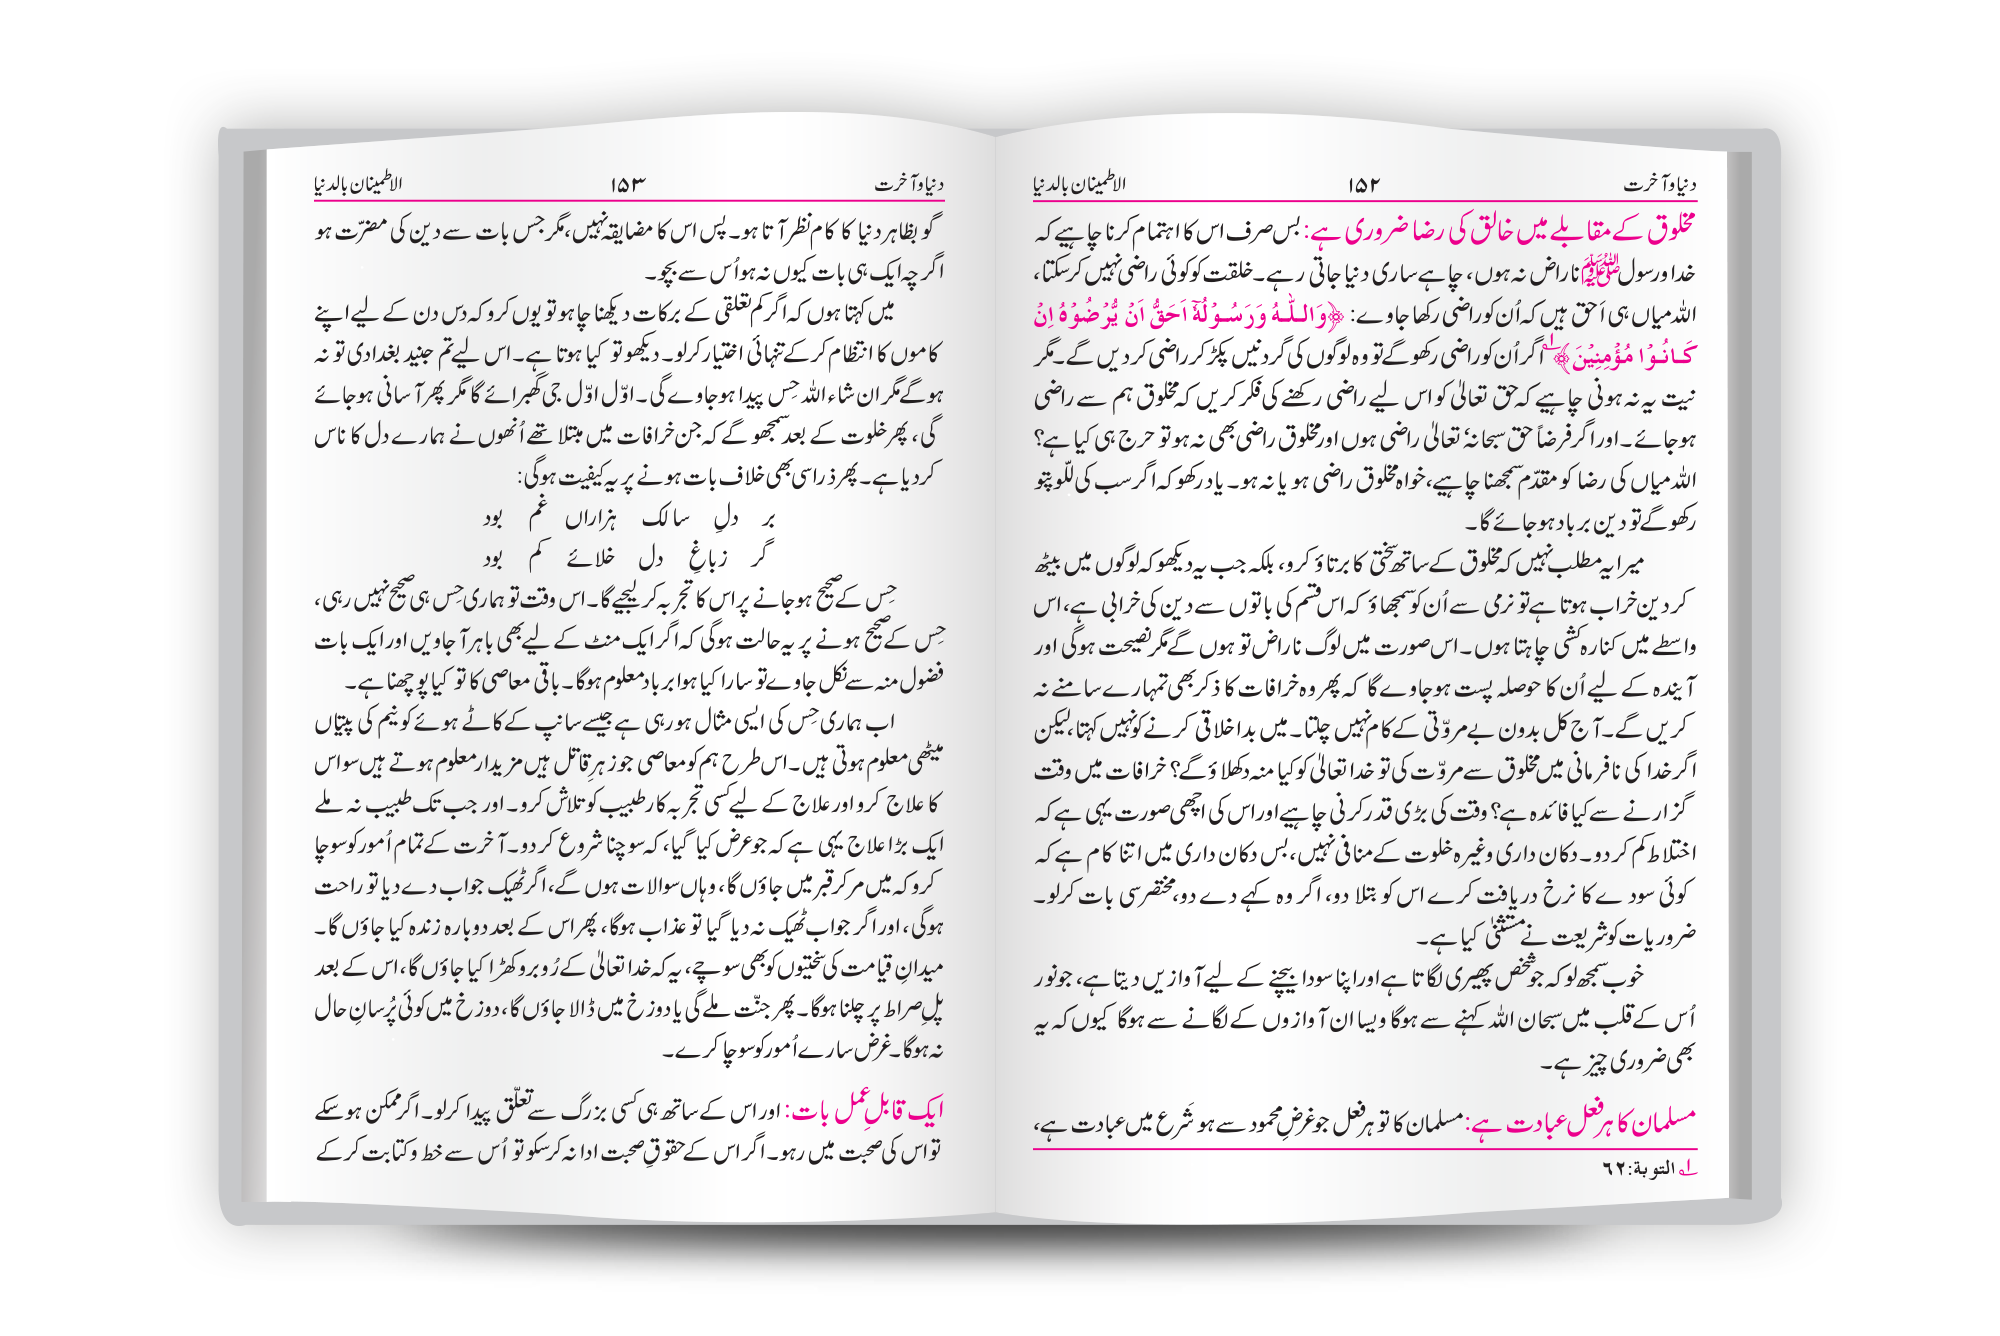 دنیا و آخرت ۱۵۲ الاطمینان بالدنیا
مخلوق کے مقابلے میں خالق کی رضا ضروری ہے: بس صرف اس کا اہتمام کرنا چاہیے کہ
خدا و رسول ﷺ ناراض نہ ہوں، چاہے ساری دنیا جاتی رہے۔ خلقت کو کوئی راضی نہیں کرسکتا،
اللہ میاں ہی اَحق ہیں کہ اُن کو راضی رکھا جاوے: ﴿وَاللّٰہُ وَرَسُوۡلُہٗۤ اَحَقُّ اَنۡ یُّرۡضُوۡہُ اِنۡ
کَانُوۡا مُؤۡمِنِیۡنَ﴾ ۱؎ اگر اُن کو راضی رکھوگے تو وہ لوگوں کی گردنیں پکڑ کر راضی کردیں گے۔ مگر
نیت یہ نہ ہونی چاہیے کہ حق تعالیٰ کو اس لیے راضی رکھنے کی فکر کریں کہ مخلوق ہم سے راضی
ہوجائے۔ اور اگر فرضاً حق سبحانہٗ تعالیٰ راضی ہوں اور مخلوق راضی بھی نہ ہو تو حرج ہی کیا ہے؟
اللہ میاں کی رضا کو مقدّم سمجھنا چاہیے، خواہ مخلوق راضی ہو یا نہ ہو۔ یاد رکھو کہ اگر سب کی للّو پتو
رکھوگے تو دین برباد ہوجائے گا۔
میرا یہ مطلب نہیں کہ مخلوق کے ساتھ سختی کا برتاؤ کرو، بلکہ جب یہ دیکھو کہ لوگوں میں بیٹھ
کر دین خراب ہوتا ہے تو نرمی سے اُن کو سمجھاؤ کہ اس قسم کی باتوں سے دین کی خرابی ہے، اس
واسطے میں کنارہ کشی چاہتا ہوں۔ اس صورت میں لوگ ناراض تو ہوں گے مگر نصیحت ہوگی اور
آیندہ کے لیے اُن کا حوصلہ پست ہوجاوے گا کہ پھر وہ خرافات کا ذکر بھی تمہارے سامنے نہ
کریں گے۔ آج کل بدون بے مروّتی کے کام نہیں چلتا۔ میں بداخلاقی کرنے کو نہیں کہتا، لیکن
اگر خدا کی نافرمانی میں مخلوق سے مروّت کی تو خدا تعالیٰ کو کیا منہ دکھلاؤ گے؟ خرافات میں وقت
گزارنے سے کیا فائدہ ہے؟ وقت کی بڑی قدر کرنی چاہیے اور اس کی اچھی صورت یہی ہے کہ
اختلاط کم کردو۔ دکان داری وغیرہ خلوت کے منافی نہیں، بس دکان داری میں اتنا کام ہے کہ
کوئی سودے کا نرخ دریافت کرے اس کو بتلا دو، اگر وہ کہے دے دو، مختصر سی بات کرلو۔
ضروریات کو شریعت نے مستثنیٰ کیا ہے۔
خوب سمجھ لو کہ جو شخص پھیری لگاتا ہے اور اپنا سودا بیچنے کے لیے آوازیں دیتا ہے، جو نور
اُس کے قلب میں سبحان اللہ کہنے سے ہوگا ویسا ان آوازوں کے لگانے سے ہوگا کیوں کہ یہ
بھی ضروری چیز ہے۔
مسلمان کا ہر فعل عبادت ہے: مسلمان کا تو ہر فعل جو غرضِ محمود سے ہو شَرع میں عبادت ہے،
۱؎ التوبة: ۶۲
دنیا و آخرت ۱۵۳ الاطمینان بالدنیا
گو بظاہر دنیا کا کام نظر آتا ہو۔ پس اس کا مضایقہ نہیں، مگر جس بات سے دین کی مضرّت ہو
اگرچہ ایک ہی بات کیوں نہ ہو اُس سے بچو۔
میں کہتا ہوں کہ اگر کم تعلقی کے برکات دیکھنا چاہو تو یوں کرو کہ دس دن کے لیے اپنے
کاموں کا انتظام کرکے تنہائی اختیار کرلو۔ دیکھو تو کیا ہوتا ہے۔ اس لیے تم جنید بغدادی تو نہ
ہوگے مگر ان شاء اللہ حِس پیدا ہوجاوے گی۔ اوّل اوّل جی گھبرائے گا مگر پھر آسانی ہوجائے
گی، پھر خلوت کے بعد سمجھو گے کہ جن خرافات میں مبتلا تھے اُنھوں نے ہمارے دل کا ناس
کردیا ہے۔ پھر ذرا سی بھی خلاف بات ہونے پر یہ کیفیت ہوگی:
بر دلِ سالک ہزاراں غم بود
گر زباغِ دل خلائے کم بود
حِس کے صحیح ہوجانے پر اس کا تجربہ کرلیجیے گا۔ اس وقت تو ہماری حِس ہی صحیح نہیں رہی،
حِس کے صحیح ہونے پر یہ حالت ہوگی کہ اگر ایک منٹ کے لیے بھی باہر آجاویں اور ایک بات
فضول منہ سے نکل جاوے تو سارا کیا ہوا برباد معلوم ہوگا۔ باقی معاصی کا تو کیا پوچھنا ہے۔
اب ہماری حِس کی ایسی مثال ہورہی ہے جیسے سانپ کے کاٹے ہوئے کو نیم کی پتیاں
میٹھی معلوم ہوتی ہیں۔ اس طرح ہم کو معاصی جو زہرِ قاتل ہیں مزیدار معلوم ہوتے ہیں سو اس
کا علاج کرو اور علاج کے لیے کسی تجربہ کار طبیب کو تلاش کرو۔ اور جب تک طبیب نہ ملے
ایک بڑا علاج یہی ہے کہ جو عرض کیا گیا، کہ سوچنا شروع کردو۔ آخرت کے تمام اُمور کو سوچا
کرو کہ میں مرکر قبر میں جاؤں گا، وہاں سوالات ہوں گے، اگر ٹھیک جواب دے دیا تو راحت
ہوگی، اور اگر جواب ٹھیک نہ دیا گیا تو عذاب ہوگا، پھر اس کے بعد دوبارہ زندہ کیا جاؤں گا۔
میدانِ قیامت کی سختیوں کو بھی سوچے، یہ کہ خدا تعالیٰ کے رُوبرو کھڑا کیا جاؤں گا، اس کے بعد
پلِ صراط پر چلنا ہوگا۔ پھر جنّت ملے گی یا دوزخ میں ڈالا جاؤں گا، دوزخ میں کوئی پُرسانِ حال
نہ ہوگا۔ غرض سارے اُمور کو سوچا کرے۔
ایک قابلِ عمل بات: اور اس کے ساتھ ہی کسی بزرگ سے تعلّق پیدا کرلو۔ اگر ممکن ہوسکے
تو اس کی صحبت میں رہو۔ اگر اس کے حقوقِ صحبت ادا نہ کرسکو تو اُس سے خط و کتابت کرکے